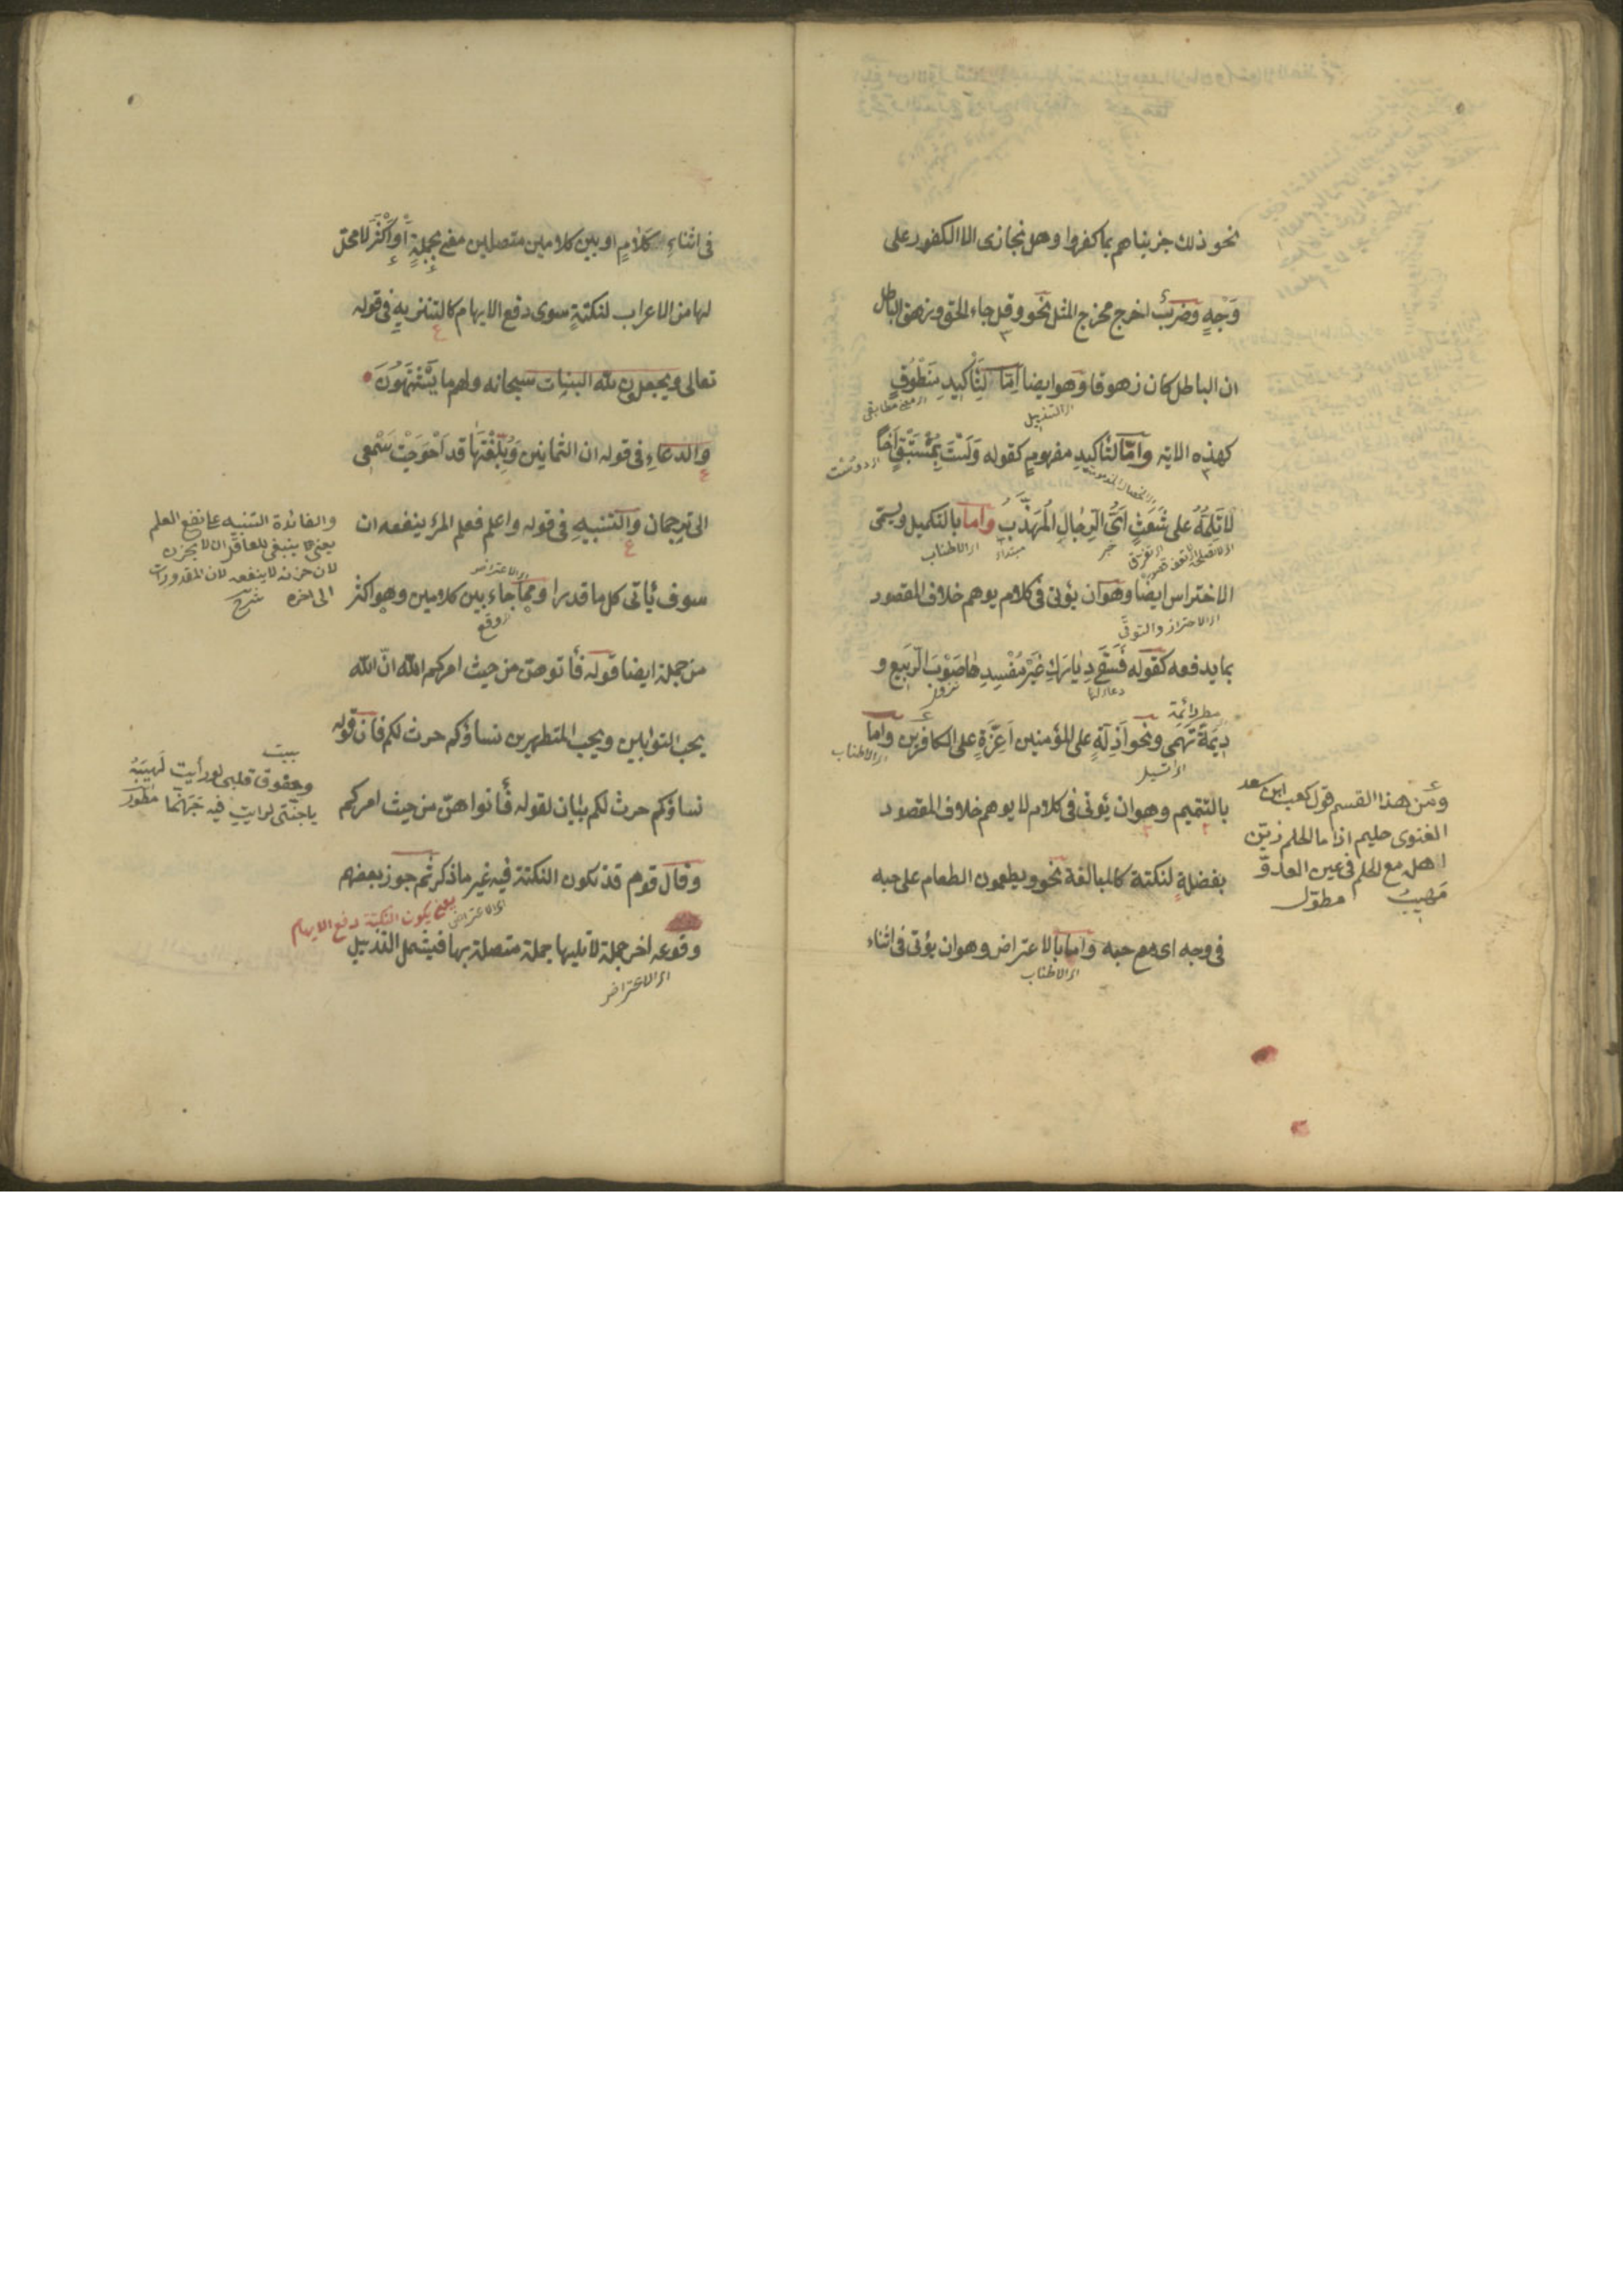 نحو ذلك جزيناهم بما كفروا وهل نجازى الا الكفور على
وَجْهٍ وضربٌ اخرج مخرج المثل نحو وقل جاء الحق وزهق الباطل
ان الباطل كان زهوقا وهو ايضا اِمّا لِتَأْكِيدِ مَنْطُوقٍ
اى التذييل
كهذه الاية وَاِمّا لتأكيدِ مفهومٍ كقوله وَلَسْتَ بِمُسْتَبْقٍ اَخاً
لَاتَلُمُّهُ على شَعَثٍ اَىُّ الرِجَالِ المُهَذَّبُ واما بالتكميل ويسمّى
خبر
مبتدأ
اى الاطناب
الاختراس ايضا وهو ان يؤتى فى كلام يوهم خلاف المقصود
اى الاحتراز والتوقى
بما يدفعه كقوله فَسَقَى دِيَارَكِ غَيْرَ مُفْسِدِهَا صَوْبُ الرَّبِيعِ و
مطر دائمة
دِيمَةٌ تَهْمِى ونحو اَذِلَّةٍ على المؤمنين اَعِزَّةٍ على الكافرين واما
اى الاطناب
بالتتميم وهو ان يؤتى فى كلام لا يوهم خلاف المقصود
بفضلةٍ لنكتة كالمبالغة نحو ويطعمون الطعام على حبه
فى وجه اى مع حبه واما بالاعتراض وهو ان يؤتى فى اثناء
اى الاطناب
ومن هذا القسم قول كعب ابن سعد
الغنوى حليم اذا ما الحلم زيّن
اهله مع الحلم فى عين العدوّ
مَهيبُ مطوّل
فى اثناءِ كَلَامٍ او بين كلامين متصلين معنى بجملةٍ أَوْ اَكْثَرَ لا محل
لها من الاعراب لنكتةٍ سوى دفع الايهام كالتنزيهِ فى قوله
تعالى ويجعلون لله البنات سبحانه ولهم ما يَشْتَهُونَ
والدعاءِ فى قوله ان الثمانين وَبُلِّغْتَهَا قد اَحْوَجَتْ سَمْعِى
الى ترجمان والتنبيهِ فى قوله واعلم فعلم المرءِ ينفعه ان
اى الاعتراض
سوف يأتى كل ما قدرا ومما جاء بين كلامين وهو اكثر
اى وقع
من جملة ايضا قوله فأتوهن من حيث امركم الله انّ الله
يحب التوابين ويحب المتطهرين نساؤكم حرث لكم فان قوله
نساؤكم حرث لكم بيان لقوله فأتوا هنّ من حيث امركم
وقال قوم قد تكون النكتة فيه غير ما ذكر ثم جوز بعضهم
يعنى يكون النكتة دفع الايهام
اى الاعتراض
وقوعه اخر جملة لا تليها جملة متصلة بها فيشمل التذييل
اى الاعتراض
والفائدة التنبيه على نفع العلم
يعنى ينبغى للعاقل ان لا يحزن
لان حزنه لا ينفعه لان المقدورات
الى اخره شرح
بيت
وخفوق قلبى لو رأيت لَهِيبَهُ
ياجنّتى لرايتِ فيه جَهَنّما مطوّل